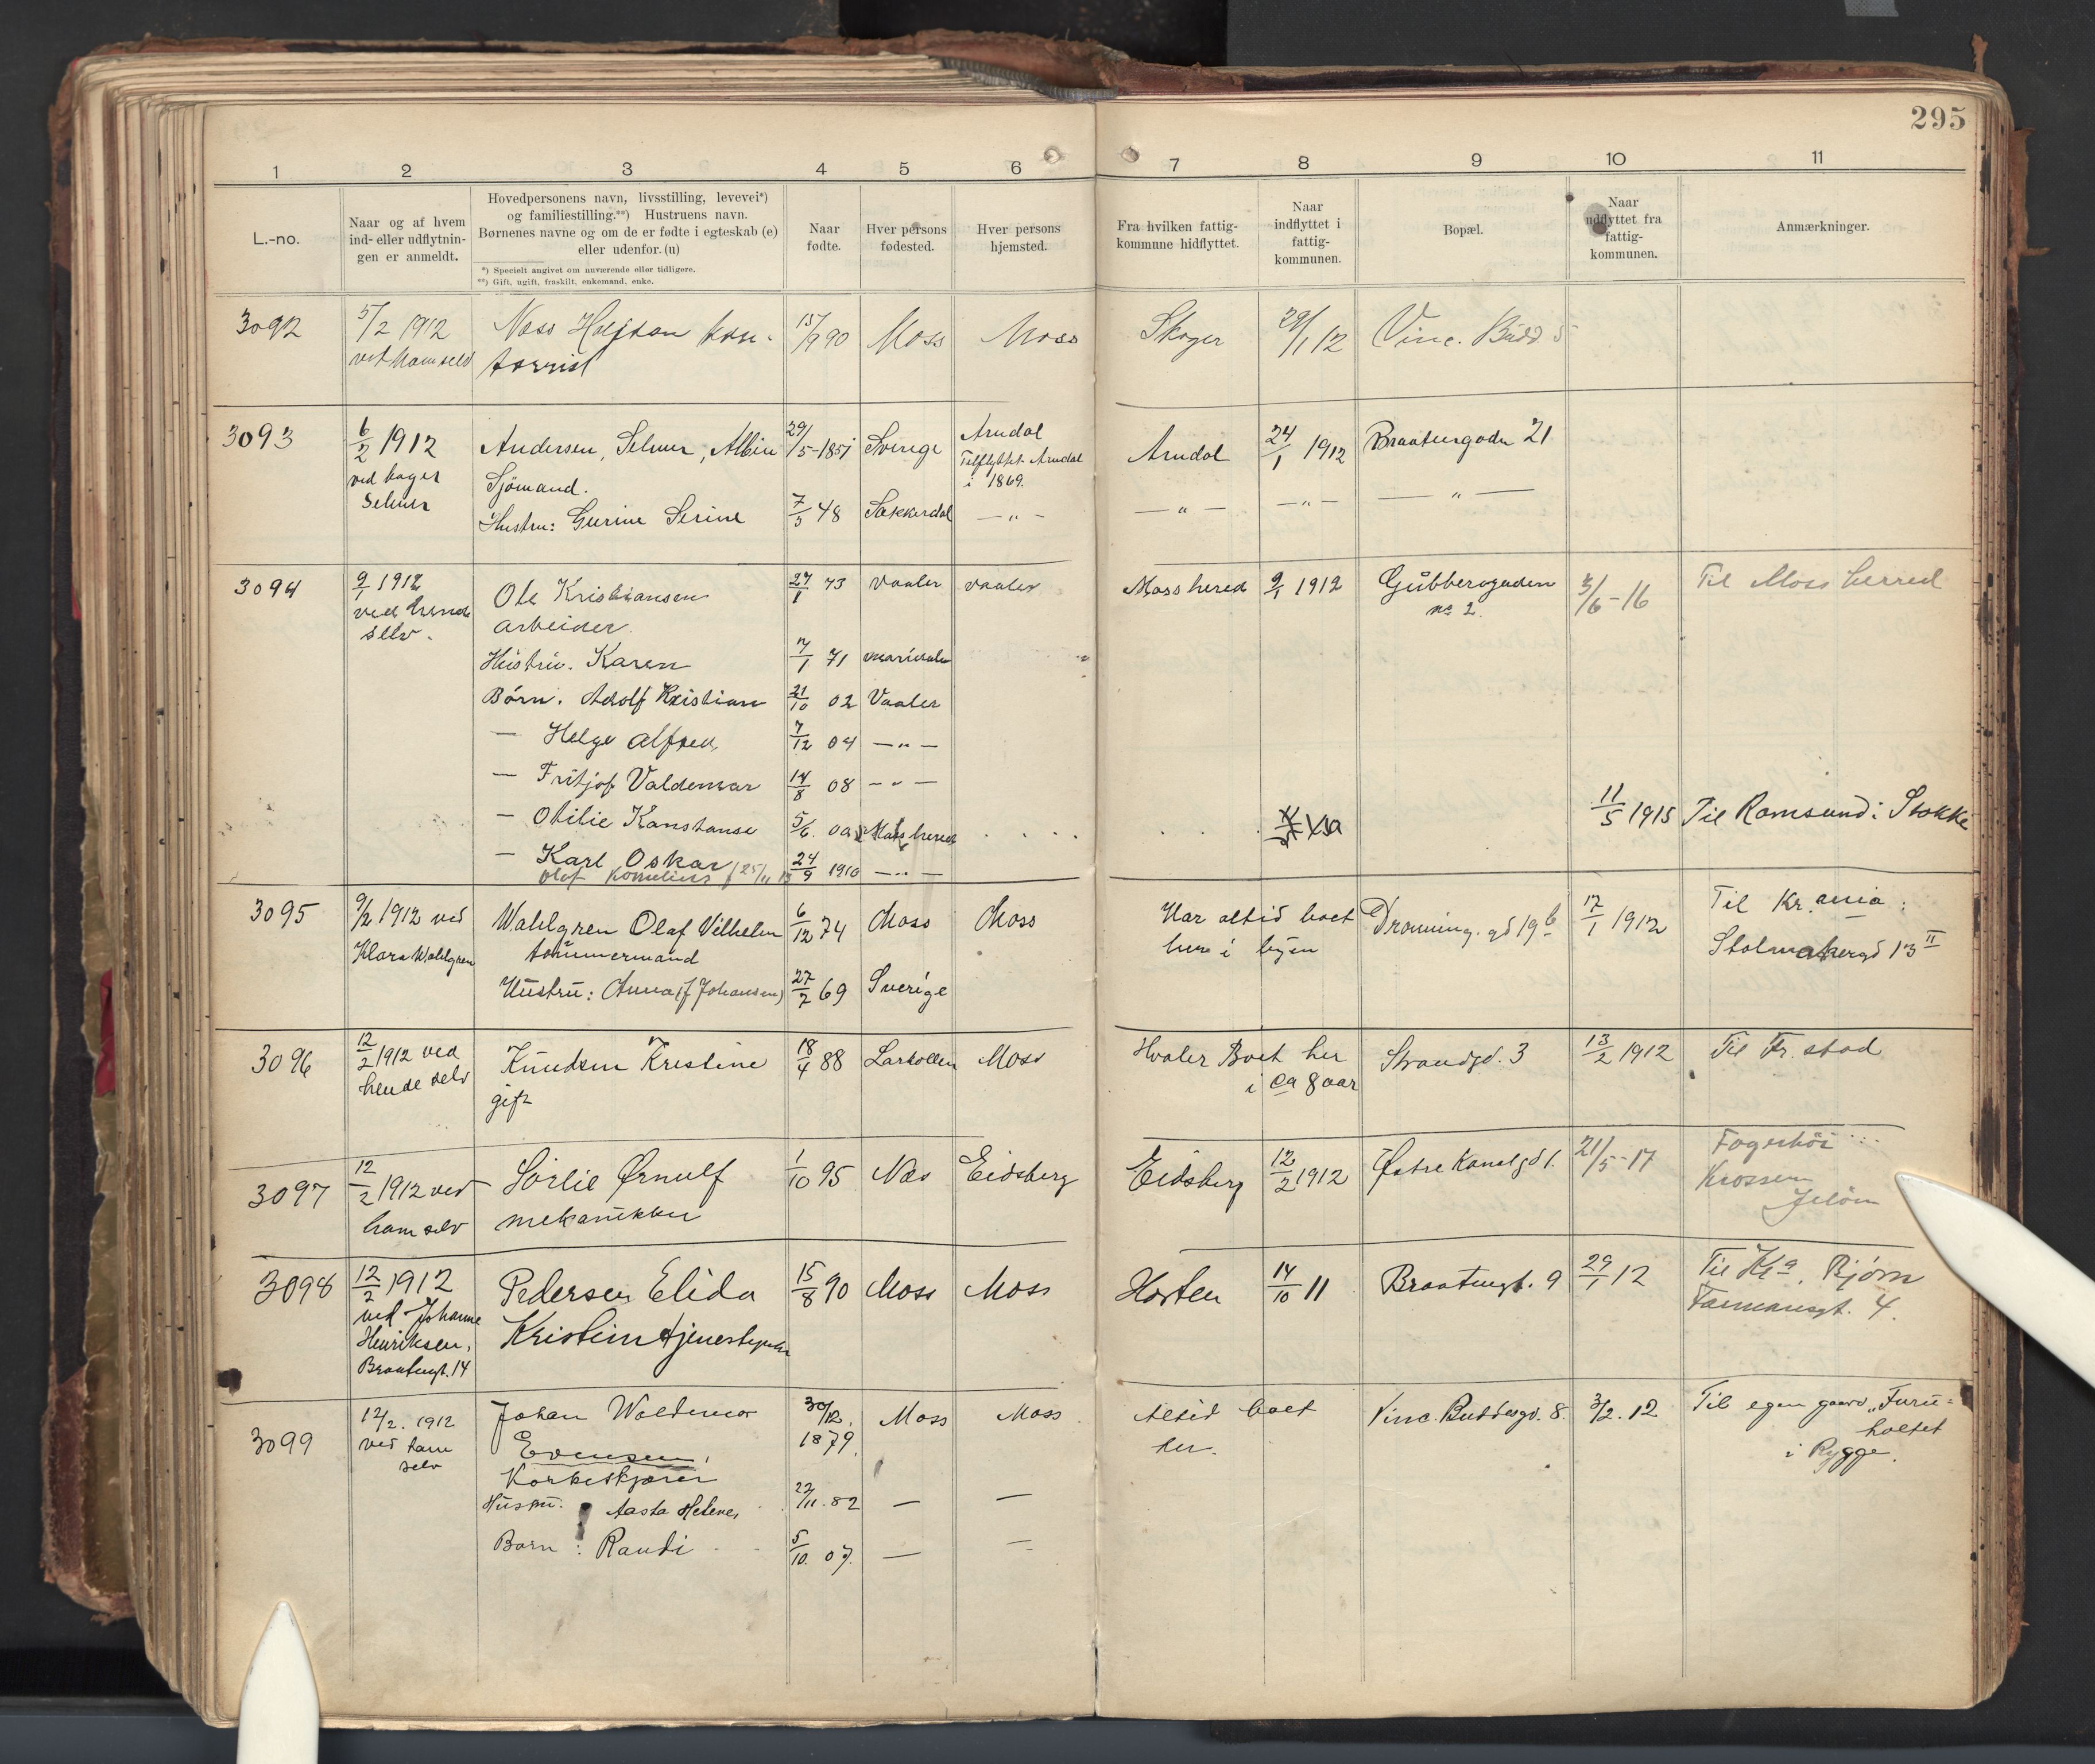 295
1 2 3 4 5 6 7 8 9 10 11
L.-no.
Naar og af hvem
ind- eller udflytnin-
gen er anmeldt.
Hovedpersonens navn, livsstilling, levevei*)
og familiestilling.**) Hustruens navn.
Børnenes navne og om de er fødte i egteskab (e)
eller udenfor. (u)
*) Specielt angivet om nuværende eller tidligere.
**) Gift, ugift, fraskilt, enkemand, enke.
Naar
fødte.
Hver persons
fødested.
Hver persons
hjemsted.
Fra hvilken fattig-
kommune hidflyttet.
Naar
indflyttet i
fattig-
kommunen.
Bopæl.
Naar
udflyttet fra
fattig-
kommunen.
Anmærkninger.
3092 5/2 1912 Næss Halfdan 15/9 90 Moss Moss Skoger 29/1 12 Vinc. Budd 5
ved ham selv
3093 6/2 1912 Andersen, Selmer, Albin 29/5-1851 Sverige Arndal Arndal 24/1 1912 Braatengaden 21
ved bager Sjömand. Tilflyttet Arndal
Selmer i 1869.
Hustru: Gurine Serine 7/3 48 Sækkerdal — " — — " — — " — — " —
3094 9/1 1912 Ole Kristiansen 27/1 73 Vaaler Vaaler Moss herred 9/1 1912 Gübberogaden 3/6-16 Til Moss herred
ved hende arbeider no 2.
selv.
Hustru. Karen 7/1 71
Børn. Adolf Kristian 21/10 02 Vaaler
— Helge Alfred 7/12 04 — " —
— Fritjof Valdemar 14/8 08 — " —
— Otilie Konstanse 5/6. Moss herred 11/5 1915 Til Ramsund i Stokke
— Karl Oskar 24/9 1910 — " —
Olaf Kornelius f 25/11 13
3095 9/2 1912 ved Wahlgren Olaf Vilhelm 6/12 74 Moss Moss Har altid boet Dronning. gd 19 b 17/1 1912 Til Kr.ania.
Klara Wahlgren tömmermand her i byen Stolmakergd 13 II
Hustru: Anna (f Johansen) 27/7 69 Sverige
3096 12/2 1912 ved Knudsen Kristine 18/4 88 Larkollen Moss Hvaler Boet her Strandgd. 3 13/2 1912 Til Fr. stad
hende selv gift i ca 8 aar
3097 12/2 1912 ved Sörlie Ørnulf 1/10 95 Næs Eidsberg Eidsberg 12/2 1912 Østre Kanalgd 1. 21/5-17 Fagerhöi
ham selv mekanikker Krossern
Jelöen
3098 12/2 1912 Pedersen Elida 15/8 90 Moss Moss Horten 14/10 11 Braatengt. 9 29/1 12 Til Kra. Bjørn
ved Johanne Kristine tjenestepike Farmansgt. 4.
Henriksen,
Braatengt. 14
3099 12/2. 1912 Johan Waldemar 30/12. 1879. Moss Moss Altid boet Vinc. Buddesgd. 8. 3/2. 12 Til egen gaard „Furu-
ved ham Evensen, her. holtet
selv Korkeskjærer i Rygge.
Hustru: Aasta Helene, 22/11. 82 — —
Barn: Randi 5/10. 07. — —